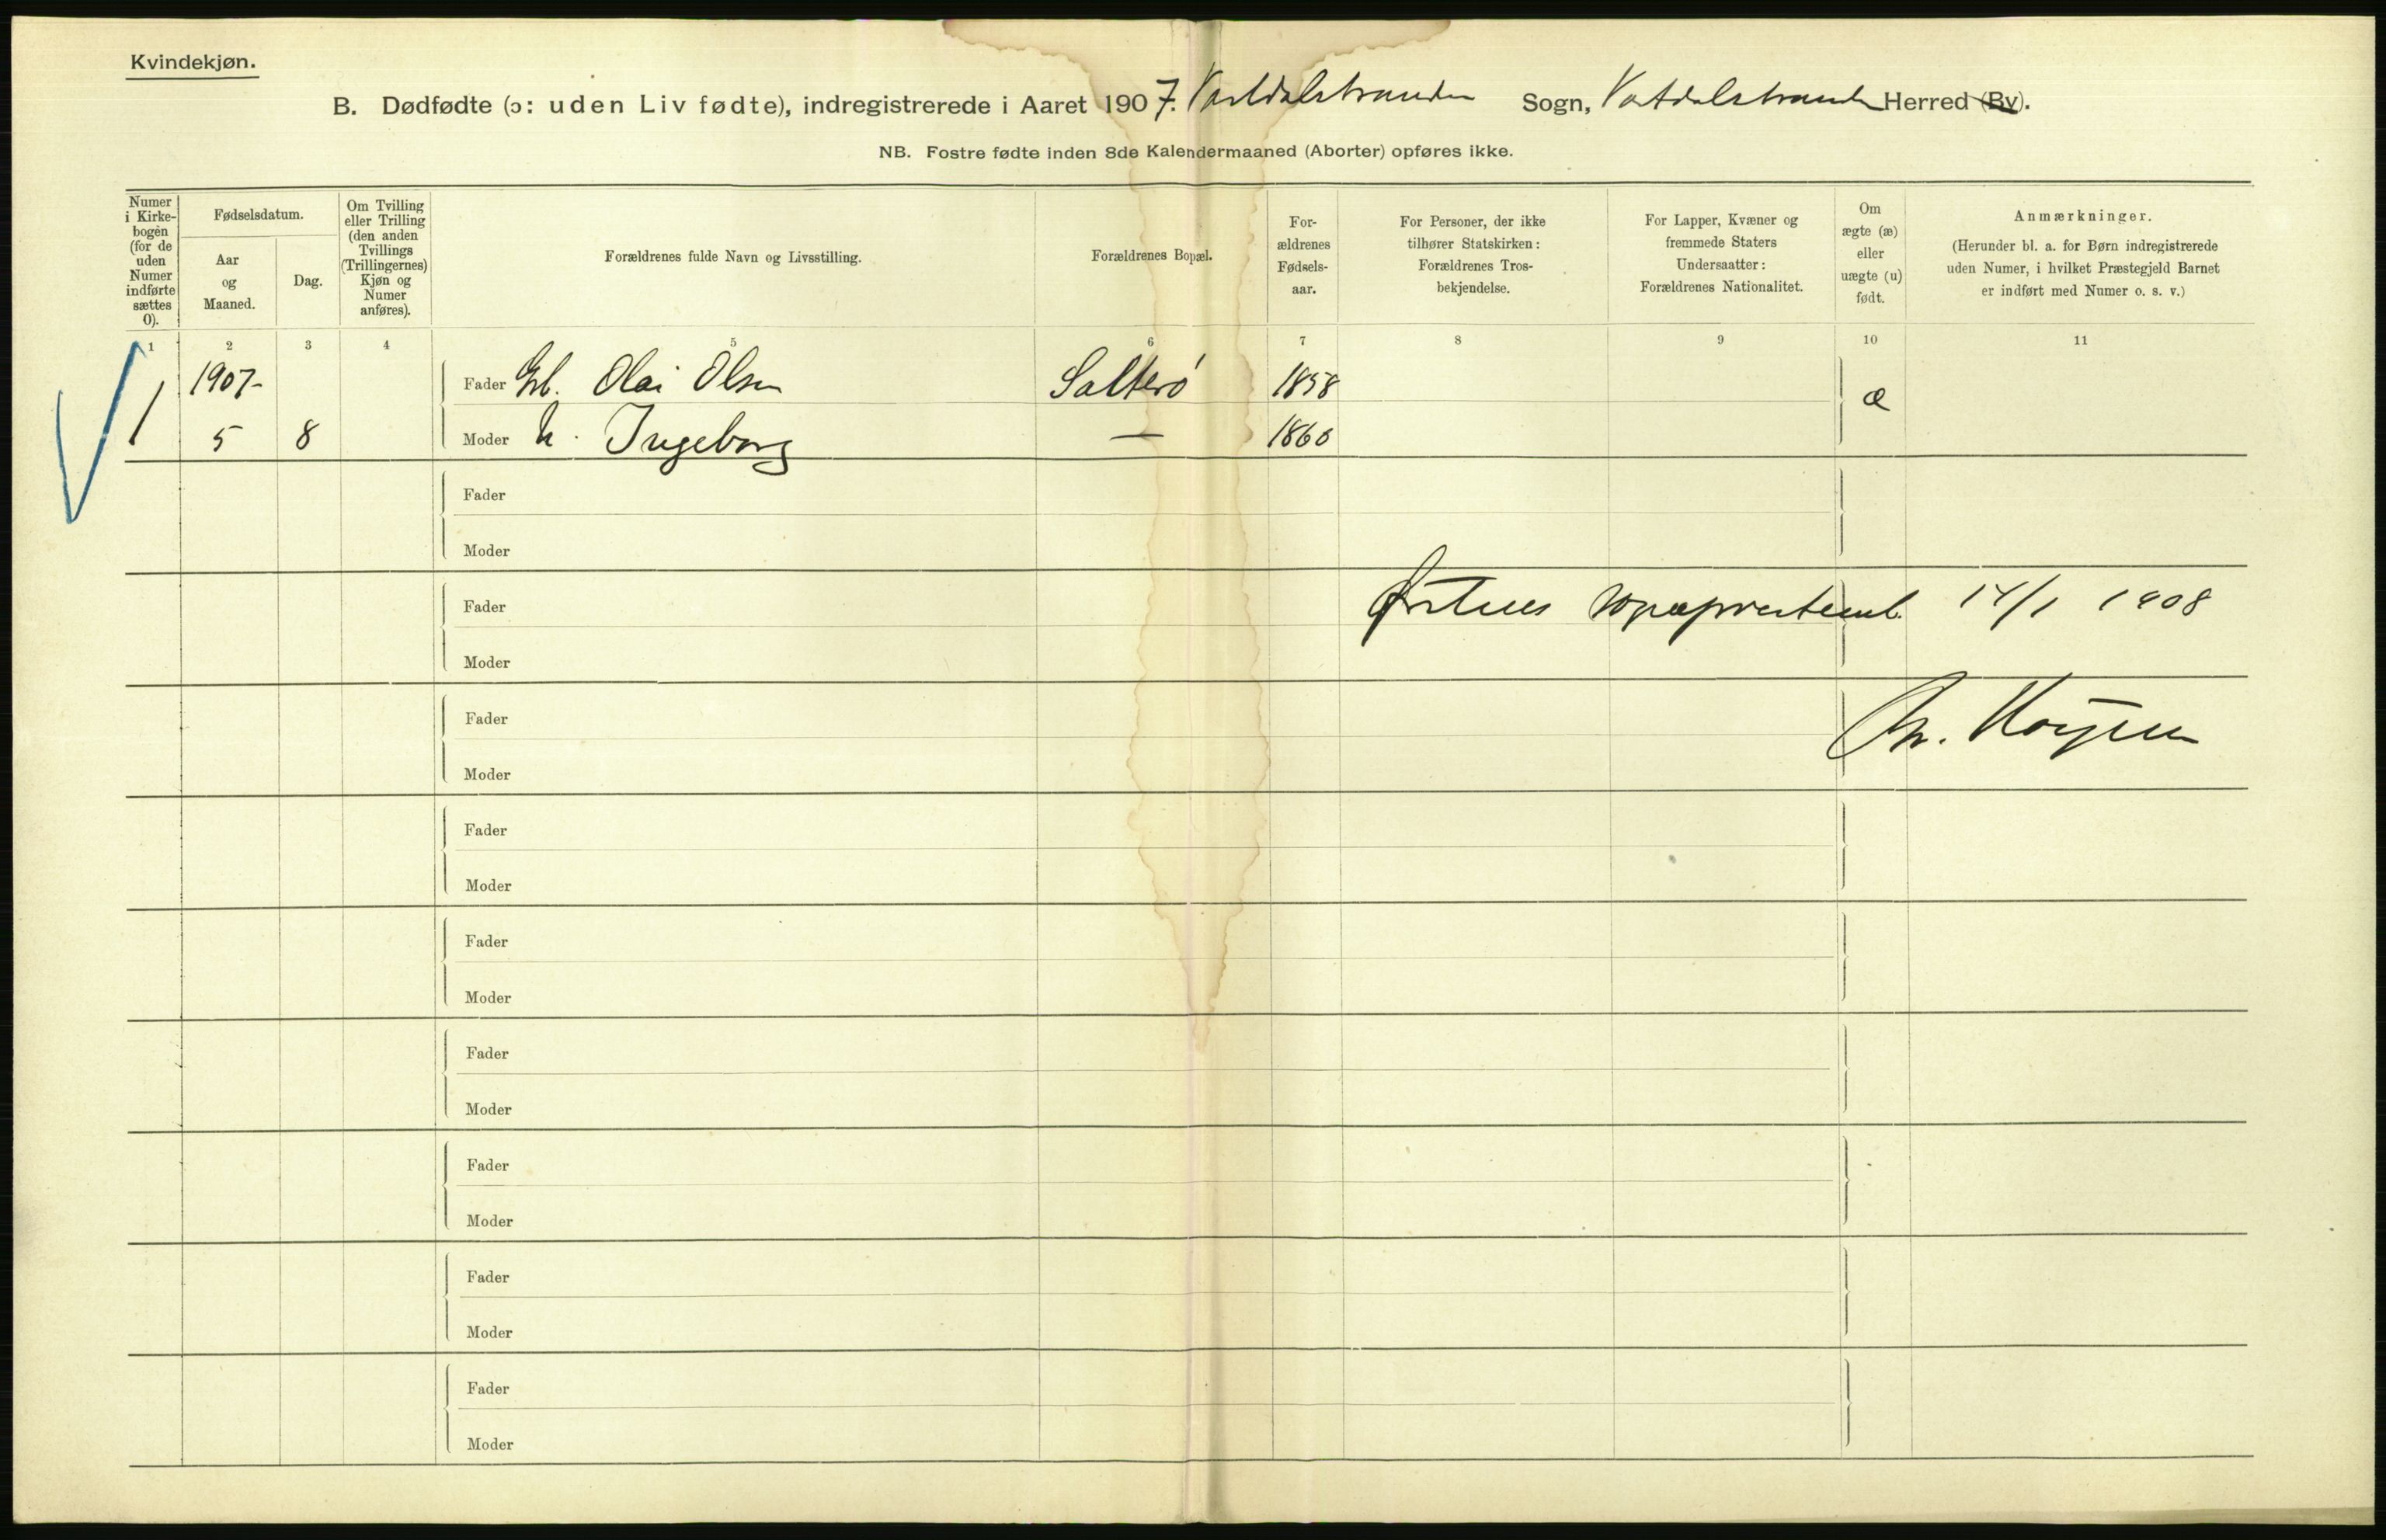 Kvindekjøn.
B. Dødfødte (ɔ: uden Liv fødte), indregistrerede i Aaret 1907. Vartdalstranden Sogn, Vartdalstranden Herred (By).
NB. Fostre fødte inden 8de Kalendermaaned (Aborter) opføres ikke.
Numer i Kirke-bogen (for de uden Numer indførte sættes 0).
Fødselsdatum.
Aar og Maaned.
Dag.
Om Tvilling eller Trilling (den anden Tvillings (Trillingernes) Kjøn og Numer anføres).
Forældrenes fulde Navn og Livsstilling.
Forældrenes Bopæl.
For-ældrenes Fødsels-aar.
For Personer, der ikke tilhører Statskirken: Forældrenes Tros-bekjendelse.
For Lapper, Kvæner og fremmede Staters Undersaatter: Forældrenes Nationalitet.
Om ægte (æ) eller uægte (u) født.
Anmærkninger.
(Herunder bl. a. for Børn indregistrerede uden Numer, i hvilket Præstegjeld Barnet er indført med Numer o. s. v.)
1 2 3 4 5 6 7 8 9 10 11
1 1907- Fader Gb. Olai Olsen Salterø 1858 æ
5 8 Moder h. Ingeborg — 1860
Fader
Moder
Fader Ørstens sogneprestemb. 14/1 1908
Moder
Fader
Moder
Fader
Moder
Fader
Moder
Fader
Moder
Fader
Moder
Fader
Moder
Fader
Moder